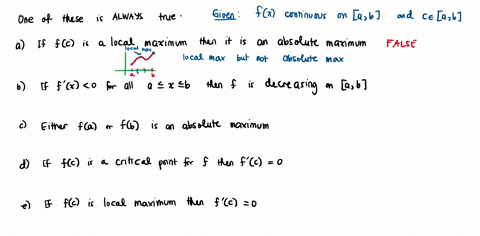 One of these is ALWAYS true. Given: f(x) continuous on [a,b] and c∈[a,b]
a) If f(c) is a local maximum then it is an absolute maximum FALSE
local max
local max but not absolute max
a b
b) If f'(x) < 0 for all a ≤ x ≤ b then f is decreasing on [a,b]
c) Either f(a) or f(b) is an absolute maximum
d) If f(c) is a critical point for f then f'(c) = 0
e) If f(c) is local maximum then f'(c) = 0